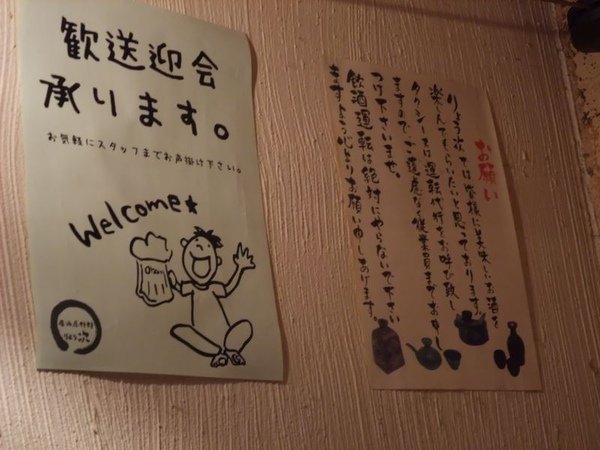 歓送迎会
承ります。
お気軽にスタッフまでお声掛け下さい。
Welcome
お願い
りょう次では皆様に美味しいお酒を
楽んでもらいたいと思っております。
タクシー又は運転代行をお呼び致し
ますので、ご遠慮なく従業員までお申し
つけ下さいませ。
飲酒運転は絶対にやらないで下さい
ます様心よりお願い申しあげます。